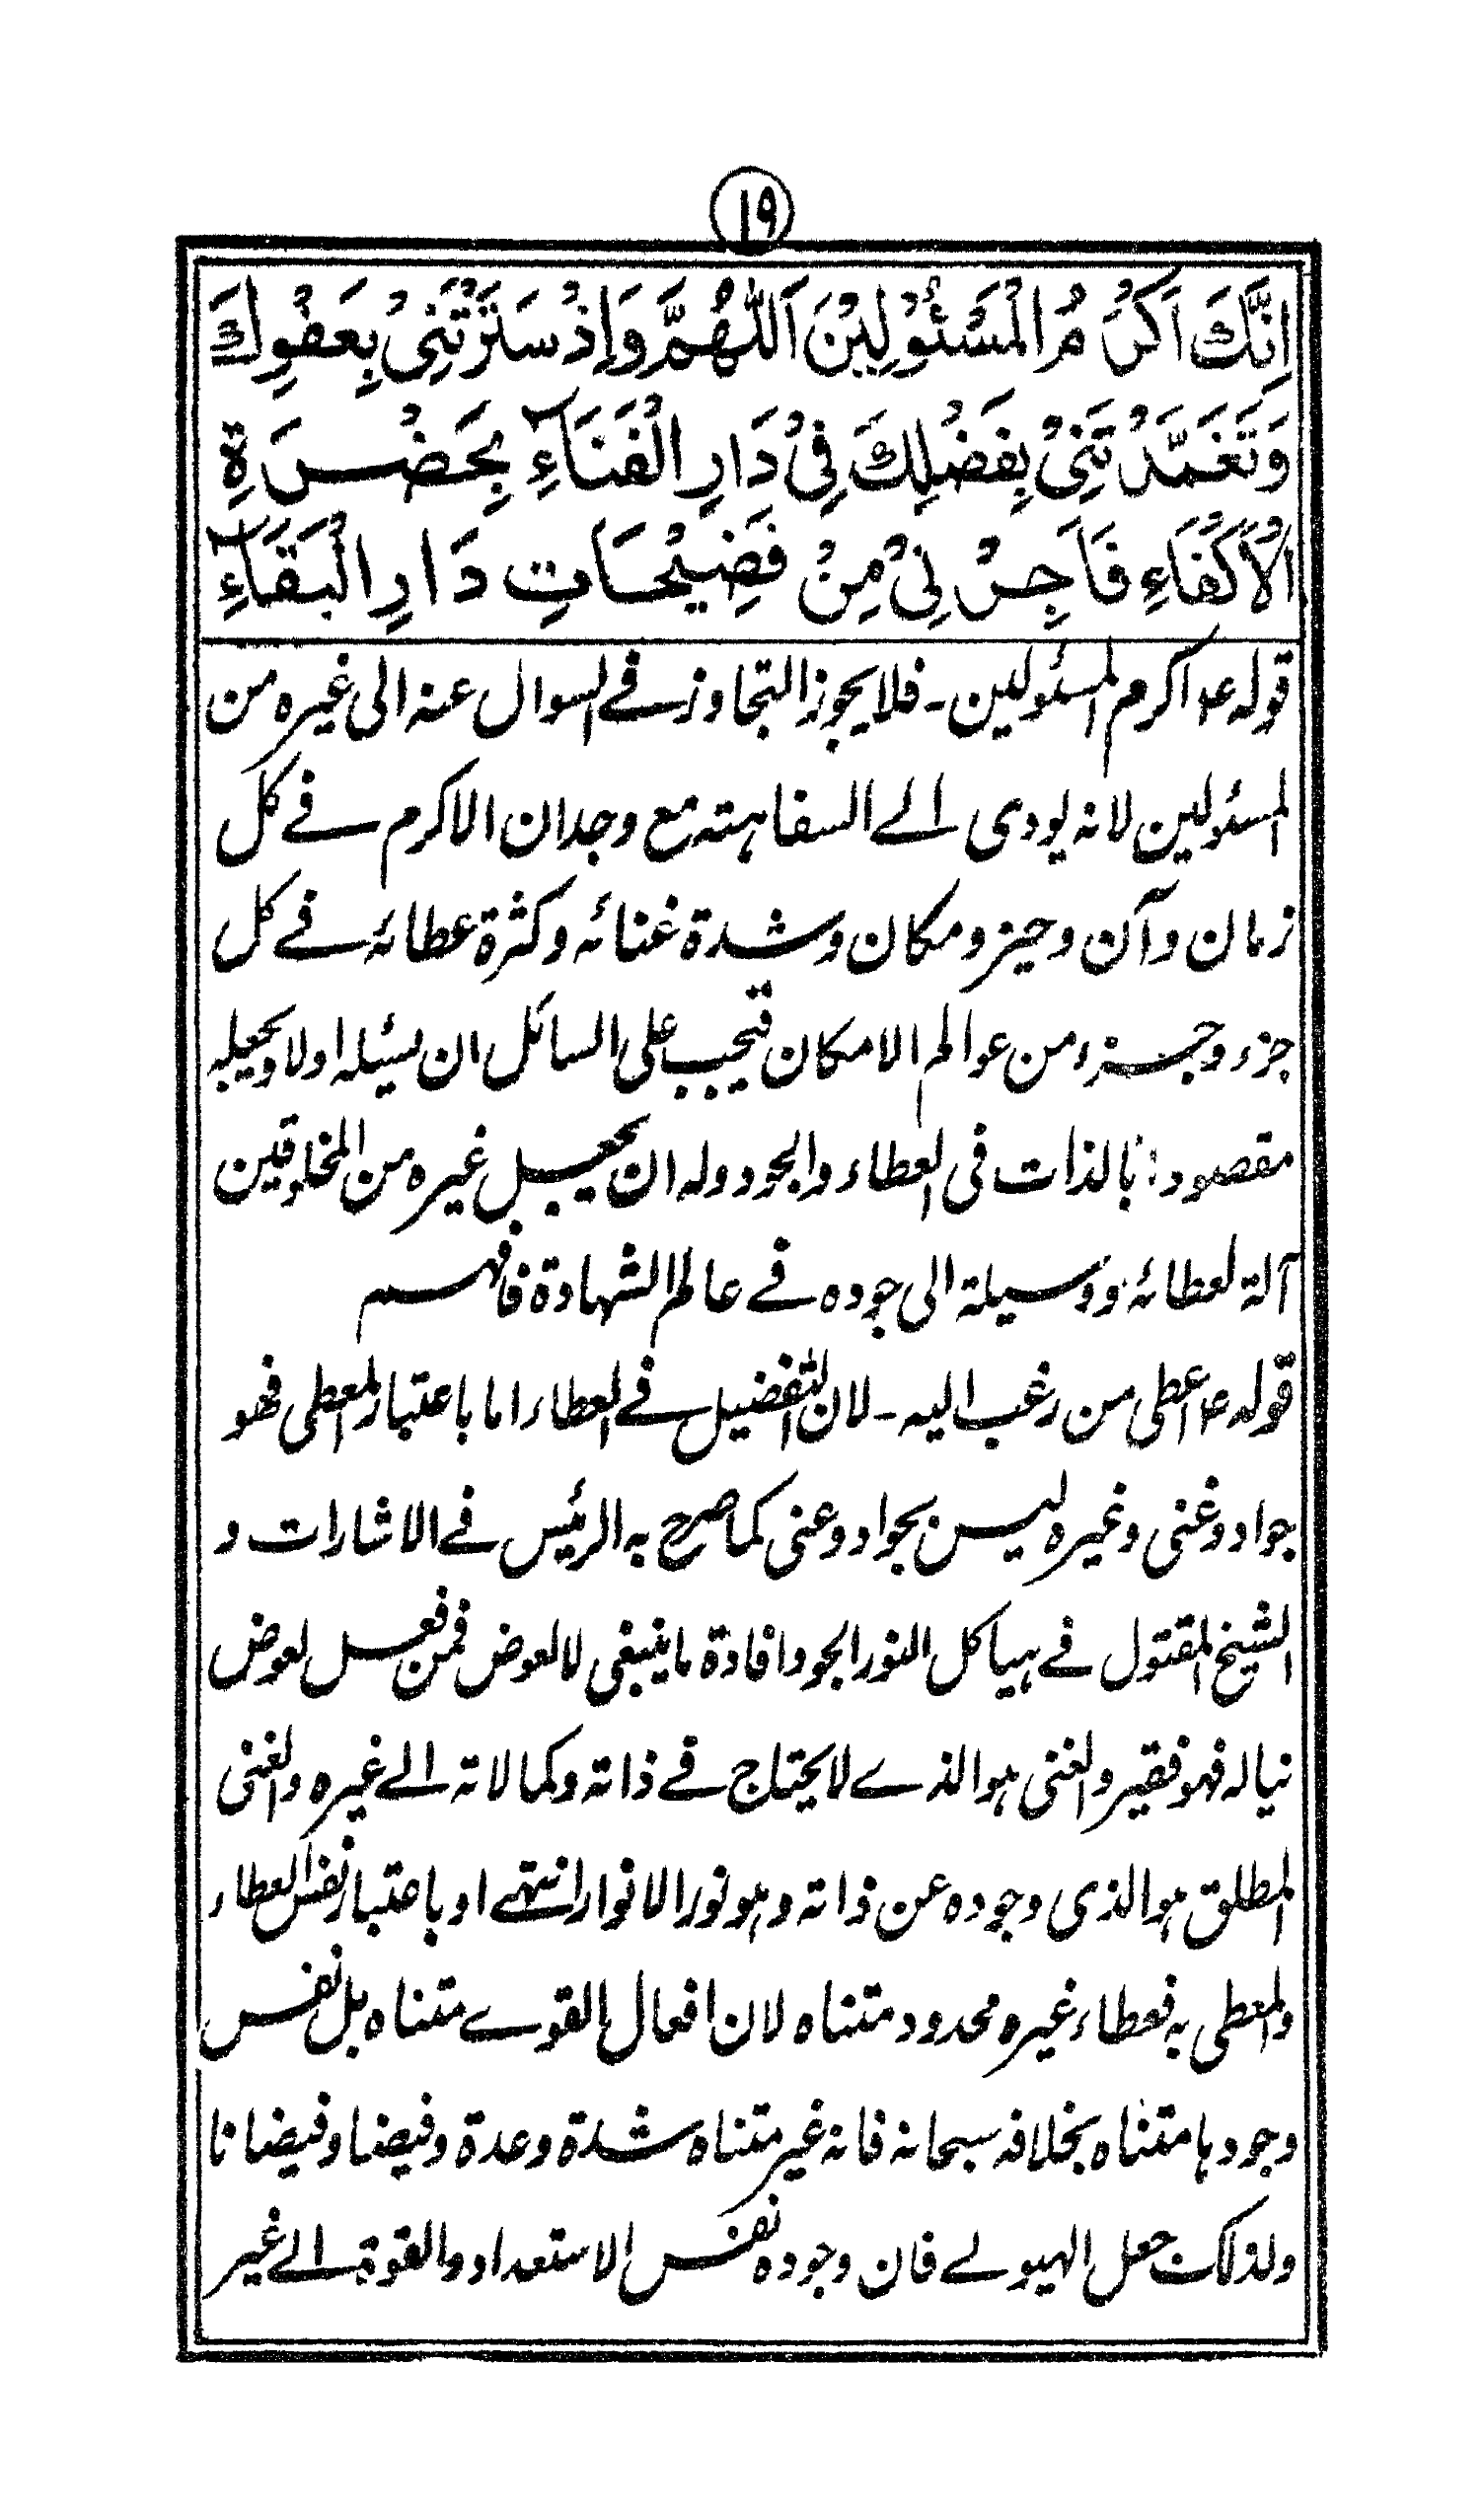 ١٩
اِنَّكَ اَكْرَمُ الْمَسْئُوْلِيْنَ اَللّٰهُمَّ وَاِذْ سَتَرْتَنِيْ بِعَفْوِكَ
وَتَغَمَّدْتَنِيْ بِفَضْلِكَ فِيْ دَارِ الْفَنَآءِ بِحَضْرَةِ
الْاَكْفَاءِ فَاَجِرْنِيْ مِنْ فَضِيْحَاتِ دَارِ الْبَقَآءِ
قوله ع اكرم المسئولين ـ فلا يجوز التجاوز في السوال عنه الى غيره من
المسئولين لانه يودى الے السفاهته مع وجدان الاكرم في كل
زمان و آن و حيز و مكان و شدة غنائه و كثرة عطائه في كل
جزء و جزء من عوالم الامكان فتجب على السائل ان يسئله اولا و يجعله
مقصودا بالذات فى العطاء و الجود و له ان يجعل غيره من المخلوقين
آلة لعطائه و وسيلة الى جوده في عالم الشهادة فافهم
قوله ع اعطى من رغب اليه ـ لان التفضيل في العطاء اما باعتبار المعطى فهو
جواد و غنى و غيره ليس بجواد و غنى كما صرح به الرئيس في الاشارات و
الشيخ المقتول في هياكل النور الجود افادة ما ينبغى لا لعوض فمن فعل لعوض
يناله فهو فقير و الغنى هو الذے لا يحتاج في ذاته و كمالاته الے غيره و الغنى
المطلق هو الذى وجوده عن ذاته و هو نور الانوار انتهے او باعتبار نفس العطاء
و المعطى به فعطاء غيره محدود متناه لان افعال القوے متناه بل نفس
وجودها متناه بخلافه سبحانه فانه غير متناه شدة و عدة و فيضا و فيضانا
و لذلك جعل الهيولے فان وجوده نفس الاستعداد و القوة الے غير